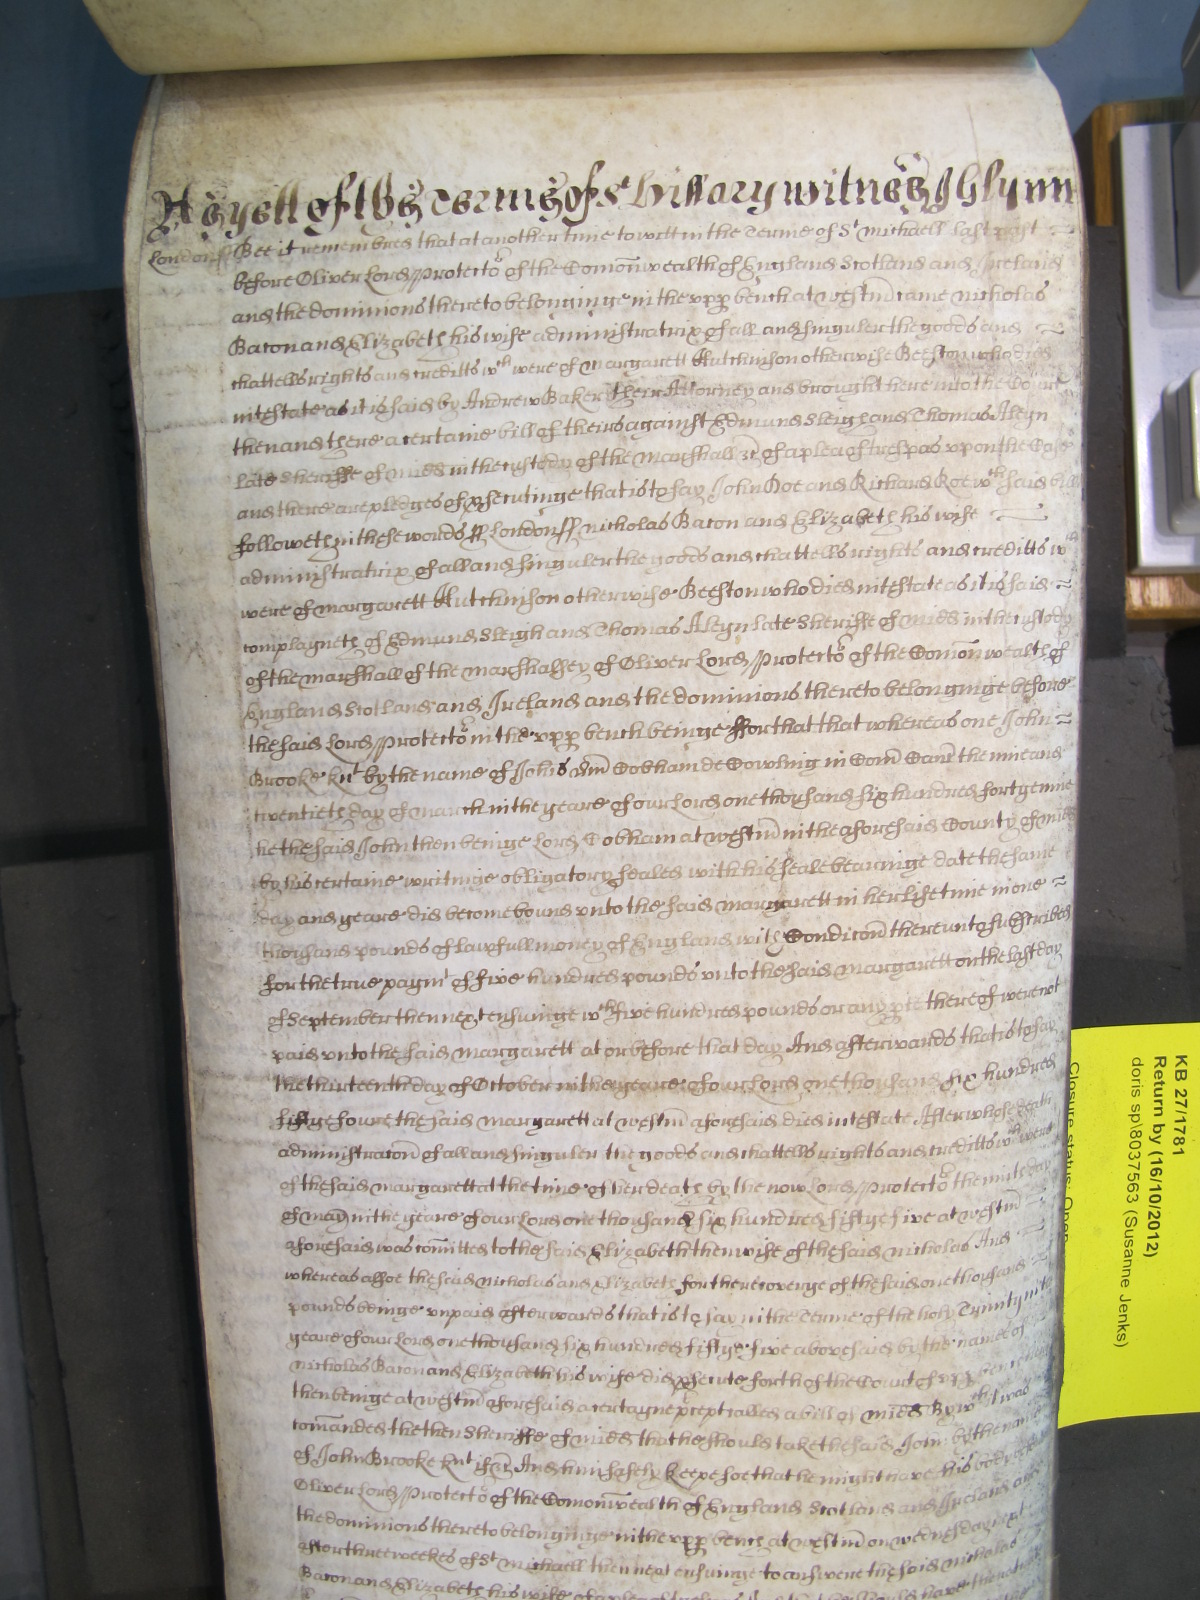 As yett of the Terme of St Hillary witnes J Glynn
London ss Bee it remembred that at another time to witt in the Terme of St Michaell last past
before Oliver Lord Protector of the Comonwealth of England Scotland and Ireland
and the dominions thereto belonginge in the upp bench at Westm came Nicholas
Bacon and Elizabeth his wife administratrix of all and singuler the goods and
chattells rights and creditts wch were of Margarett Hutchinson otherwise Beeston who died
intestate as it is said by Andrew Baker their Attorney and brought here into the Court
then and there a certaine bill of theirs against Edmund Sleigh and Thomas Aleyn
late Sheriffe of Midd in the custody of the Marshall &c of a plea of trespas upon the Case
and there are pledges of psecutinge that is to say John Doe and Richard Roe wch said bill
followeth in these words ss London ss Nicholas Bacon and Elizabeth his wife
administratrix of all and singuler the goods and chattells rights and creditts wch
were of Margarett Hutchinson otherwise Beeston who died intestate as it is said
complayneth of Edmund Sleigh and Thomas Aleyn late Sheriffe of Midd in the custody
of the Marshall of the Marshalsey of Oliver Lord Protector of the Comonwealth of
England Scotland and Ireland and the dominions thereto belonginge before
the said Lord Protector in the upp bench beinge Ffor that that whereas one John
Brooke knt by the name of John Dom Cobham de Cowling in Com Cant the nine and
twentieth day of March in the yeare of our Lord one thousand six hundred forty nine
he the said John then beinge Lord Cobham at Westm in the aforesaid County of Midd
by his certaine writinge obligatory sealed with his seale bearinge date the same
day and yeare did become bound unto the said Margarett in her life time in one
thousand pounds of lawfull money of England with Condicon thereunto subscribed
for the true paymt of five hundred pounds unto the said Margarett on the last day
of September then next ensuinge wch five hundred pounds or any pte thereof were not
paid unto the said Margarett at or before that day And afterwards that is to say
the thirteenth day of October in the yeare of our Lord one thousand six hundred
fiftye foure the said Margarett at Westm aforesaid died intestate After whose death
administracon of all and singuler the goods and chattells rights and creditts wch were
of the said Margarett at the time of her death by the now Lord Protector the day
of May in the yeare of our Lord one thousand six hundred fiftye five at Westm
aforesaid was comitted to the said Elizabeth then wife of the said Nicholas And
whereas alsoe the said Nicholas and Elizabeth for the recoverye of the said one thousand
pounds beinge unpaid afterwards that is to say in the Terme of the holy Trinity in the
yeare of our Lord one thousand six hundred fiftye five abovesaid by the names of
Nicholas Bacon and Elizabeth his wife did psecute forth of the Court of upp bench
then beinge at Westm aforesaid a certayne precept called a bill of Midd By wch it was
comanded the then Sheriffe of Midd that he should take the said John by the name
of John Brooke knt if &c And him safely keepe soe that he might have his body before
Oliver Lord Protector of the Comonwealth of England Scotland and Ireland and
the dominions thereto belonginge in the upp bench at Westm on Wednesday next
after three weekes of St Michaell then next ensuinge to answere the said Nicholas
Bacon and Elizabeth his wife of a plea of
KB 27/1781
Return by (16/10/2012)
doris sp\8037563 (Susanne Jenks)
Closure status: Open